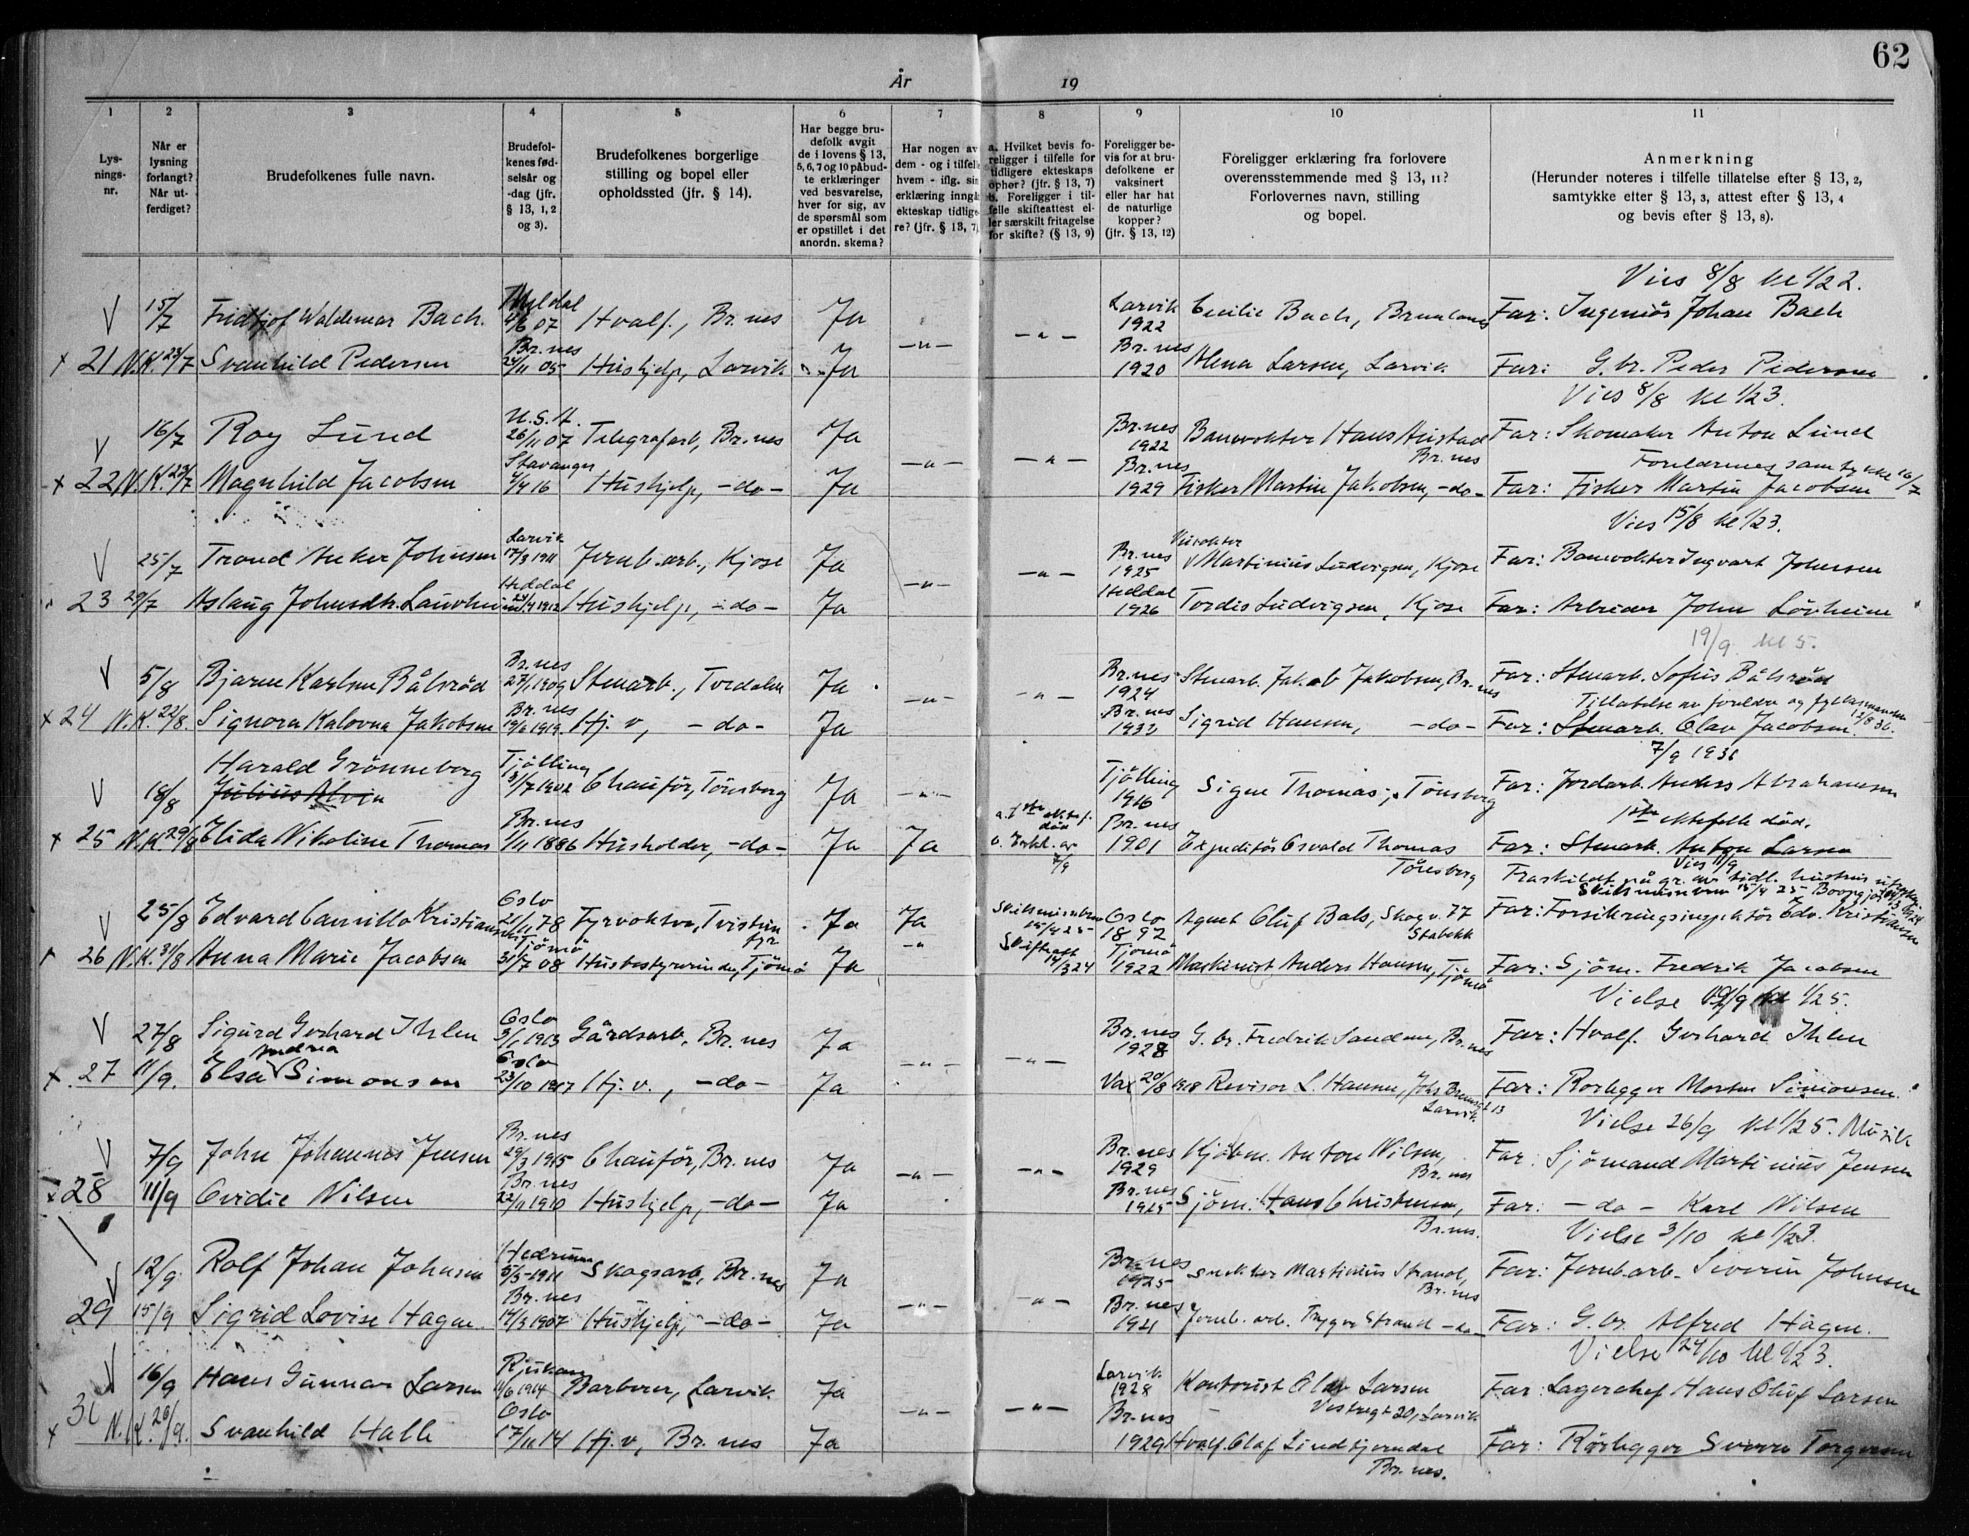 62
År 19
1 2 3 4 5 6 7 8 9 10 11
Lys-
nings-
nr.
Når er
lysning
forlangt?
Når ut-
ferdiget?
Brudefolkenes fulle navn.
Brudefol-
kenes fød-
selsår og
-dag (jfr.
§ 13, 1, 2
og 3).
Brudefolkenes borgerlige
stilling og bopel eller
opholdssted (jfr. § 14).
Har begge bru-
defolk avgit
de i lovens § 13,
5, 6, 7 og 10 påbud-
te erklæringer
ved besvarelse,
hver for sig, av
de spørsmål som
er opstillet i det
anordn. skema?
Har nogen av
dem - og i tilfelle
hvem - iflg. sin
erklæring inngått
ekteskap tidlige-
re? (jfr. § 13, 7)
a. Hvilket bevis fo-
religger i tilfelle for
tidligere ekteskaps
ophør? (jfr. § 13, 7)
b. Foreligger i til-
felle skifteattest el-
ler særskilt fritagelse
for skifte? (§ 13, 9)
Foreligger be-
vis for at bru-
defolkene er
vaksinert
eller har hat
de naturlige
kopper?
(jfr. § 13, 12)
Foreligger erklæring fra forlovere
overensstemmende med § 13, 11?
Forlovernes navn, stilling
og bopel.
Anmerkning
(Herunder noteres i tilfelle tillatelse efter § 13, 2,
samtykke efter § 13, 3, attest efter § 13, 4
og bevis efter § 13, 8).
Vies 8/8 kl 1/2 2.
V 15/7 Fridtjof Waldemar Bach. 4/6 07 Hvalf., Br.nes Ja Larvik 1922 Cecilie Bach, Brunlanes Far: Ingeniör Johan Bach
x 21 N.K. 23/7 Svanhild Pedersen Br.nes 24/11 05 Hushjelp, Larvik Ja —"— —"— Br.nes 1920 Alena Larsen, Larvik Far: G.br. Peder Pedersen
Vies 8/8 kl 1/2 3.
V 16/7 Roy Lund U.S.A. 26/11 07 Telegrafarb, Br.nes Ja Br.nes 1922 Banevokter Hans Austad Br.nes Far: Skomaker Anton Lund
Foreldrenes samtykke 16/7
x 22 N.K. 23/7 Magnhild Jacobsen Stavanger 4/4 16 Hushjelp, —do— Ja —"— —"— Br.nes 1929 Fisker Martin Jakobsen, —do— Far: Fisker Martin Jacobsen
Vies 15/8 kl 1/2 3.
V 25/7 Trond Anker Johnsen Larvik 17/3 1911 Jernb.arb., Kjose Ja Br.nes 1925 Martinius Ludvigsen, Kjose Far: Banevokter Ingvart Johnsen
23 29/7 Aslaug Johnsdt. Lauvheim Heddal 24/4 1912 Hushjelp, —do— Ja —"— —"— Heddal 1926 Tordis Ludvigsen, Kjose Far: Arbeider John Lövheim
19/9 kl 5.
V 5/8 Bjarne Karlsen Bålsröd Br.nes 27/1 1909 Stenarb., Tvedalen Ja Br.nes 1924 Stenarb. Jakob Jakobsen, Br.nes Far: Stenarb. Sofus Bålsröd
Tillatelse av foreldre og fylkesmannen 12/8 36.
x 24 N.K. 22/8. Signora Kalovna Jakobsen Br.nes 19/6 1919. Hj. v, —do— Ja —"— —"— Br.nes 1932 Sigrid Hansen, —do— Far: Stenarb. Olav Jacobsen.
7/9 1936
V 18/8 Harald Grönneberg Tjölling 3/7 1902 Chauför, Tönsberg Ja —"— Tjölling 1916 Signe Thomas, Tönsberg Far: Jordarb. Anders Abrahamsen
1ste ektefelle död.
x 25 N.K. 29/8 Elida Nikoline Thomas Br.nes 1/11 1886 Husholder, —do— Ja Ja Br.nes 1901 Expeditör Osvald Thomas Tönsberg Far: Stenarb. Anton Larsen
Vies 11/9
V 25/8 Edvard Camillo Kristiansen Oslo 21/11 78 Fyrvokter, Tvistein fyr. Ja Ja Oslo 1892 Agent Oluf Bals, Skog v. 77 Stabekk Far: Forsikringsinspektör Edv. Kristiansen
26 N.K. 31/8 Anna Marie Jacobsen Tjömö 31/7 08 Husbestyrerinde, Tjömö Ja —"— Tjömö 1922 Maskinist Anders Hansen, Tjömö Far: Sjöm. Fredrik Jacobsen
Vielse 19/9 kl 1/2 5.
V 27/8 Sigurd Gerhard Ihlen Oslo 3/1 1913 Gårdsarb, Br.nes Ja Br.nes 1928 G.br. Fredrik Sandnes, Br.nes Far: Hvalf. Gerhard Ihlen
x 27 11/9. Elsa Andrea Simonsen Oslo 23/10 1917 Hj. v., —do— Ja —"— —"— Vax 20/8 1918 Revisor L. Hansen, Larvik. Far: Rörlegger Morten Simonsen.
Vielse 26/9 kl 1/2 5. Musik
V 7/9 John Johannes Jensen Br.nes 29/3 1915 Chauför, Br.nes Ja —"— —"— Br.nes 1929 Kjöbm. Anton Nilsen, Br.nes Far: Sjömand Martinius Jensen
x 28 11/9 Ovidie Nilsen Br.nes 22/11 1910 Hushjelp, —do— Ja Br.nes 1925 Sjöm. Hans Christensen, Br.nes. Far: —do— Karl Nilsen
Vielse 3/10 kl 1/2 3.
V 12/9. Rolf Johan Johnsen Hedrum 5/5-1911 Skogsarb, Br.nes Ja Br.nes 1925 Snekker Martinius Strand, Br.nes Far: Jernb.arb. Severin Johnsen
29 15/9 Sigrid Lovise Hagen Br.nes 14/3 1907 Hushjelp, —do— Ja —"— —"— Br.nes 1921 Jernb. arb. Trygve Strand —do— Far: G.br. Alfred Hagen.
Vielse 24/10 kl 1/2 3.
V 16/9 Hans Gunnar Larsen Rjukan 11/6 1914 Barberer, Larvik Ja Larvik 1928 Kontorist Olav Larsen Vestregt 20, Larvik Far: Lagerchef Hans Oluf Larsen
x 30 N.K. 26/9. Svanhild Halle Oslo 17/11 14 Hj. v, Br.nes Ja —"— —"— Br.nes 1929 Hvalf. Olaf Lindhjemdal Br.nes. Far: Rörlegger Sverre Torgersen